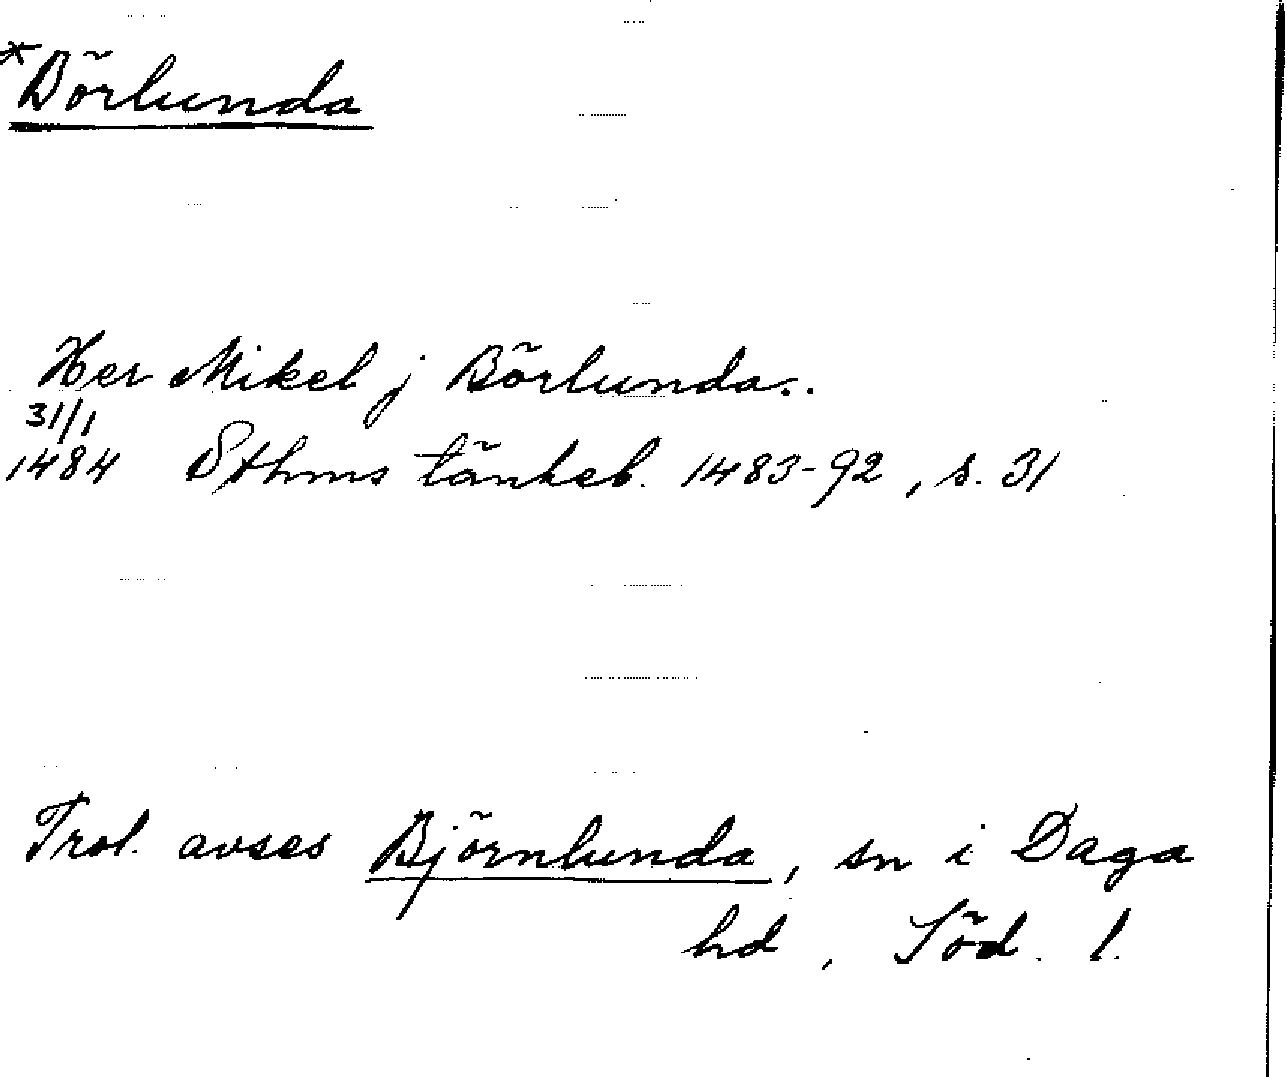 *Börlunda
Her Mikel j Börlunda..
31/1
1484 Sthms tänkeb. 1483-92, s. 31
Trol. avses Björnlunda, sn i Daga
hd, Söd. l.